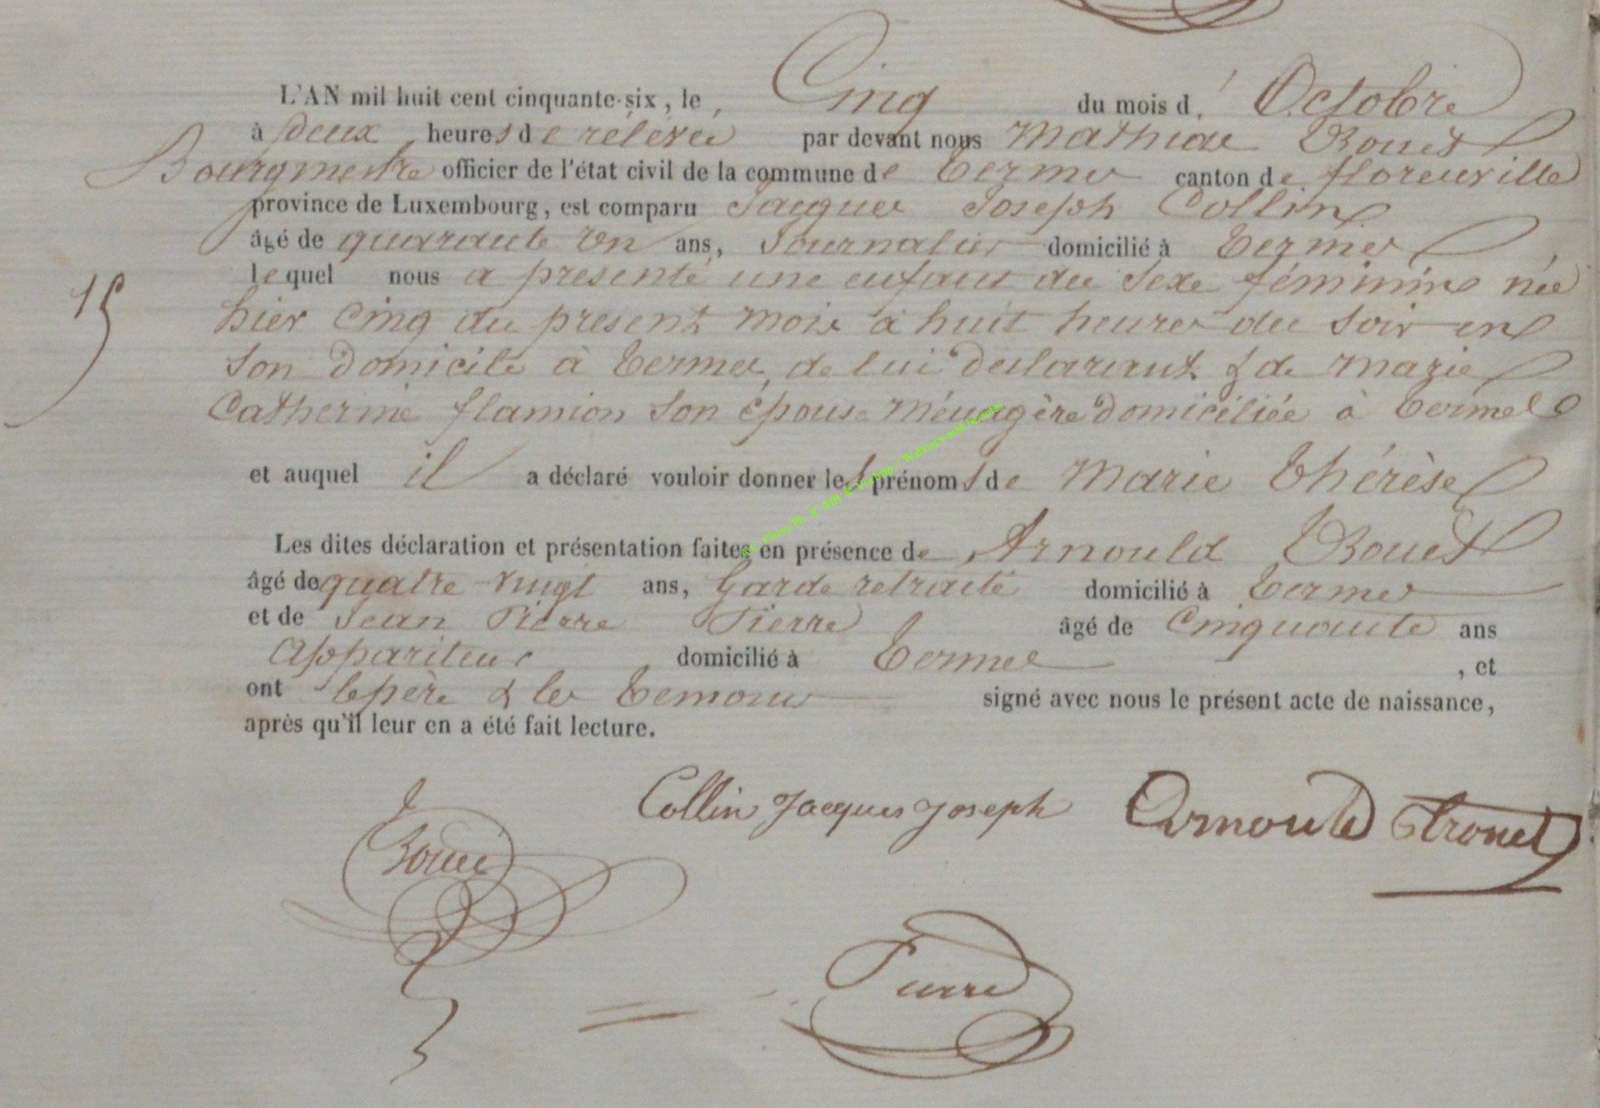 L'AN mil huit cent cinquante-six, le Cinq du mois d' Octobre
à deux heures de rélevée par devant nous Mathieu Bouet
Bourgmestre officier de l'état civil de la commune de Termes canton de florenville
province de Luxembourg, est comparu Jacques Joseph Collin
âgé de quarante un ans, Journalier domicilié à Termes
lequel nous a presenté une enfant du sexe féminin née
15
hier cinq du present mois à huit heures du soir en
son domicile à Termes, de lui déclarant & de Marie
Catherine flamion son épouse Ménagère domiciliée à Termes
et auquel il a déclaré vouloir donner les prénoms de Marie Thérèse
Les dites déclaration et présentation faites en présence de Arnould Bouet
âgé de quatre vingt ans, Garde retraité domicilié à Termes
et de Jean Pierre Pierre âgé de Cinquante ans
Appariteur domicilié à Termes , et
ont le père & les Temoins signé avec nous le présent acte de naissance,
après qu'il leur en a été fait lecture.
Collin Jacques Joseph Arnould
Pierre